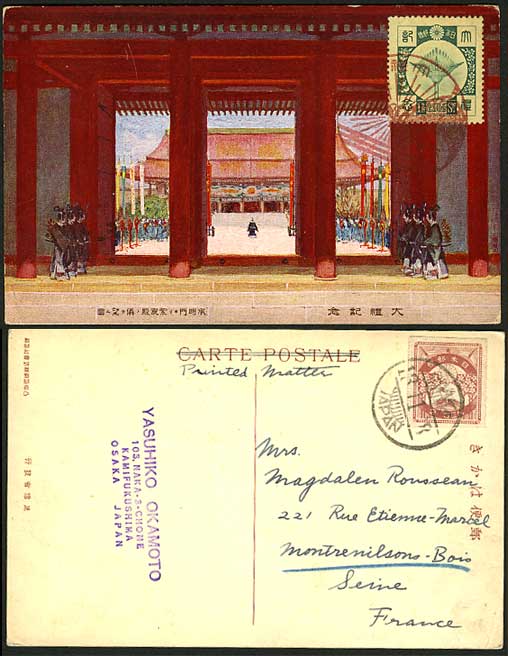 大禮記念
承明門ヨリ紫宸殿ノ儀ヲ望ム圖
CARTE POSTALE
Printed Matter
郵便はかき
YASUHIKO OKAMOTO
103, NAKA-2-CHOME
KAMIFUKUSHIMA
OSAKA JAPAN
Mrs.
Magdalen Rousseau
221 Rue Etienne-Marcel
Montrenilsons-Bois
Seine
France